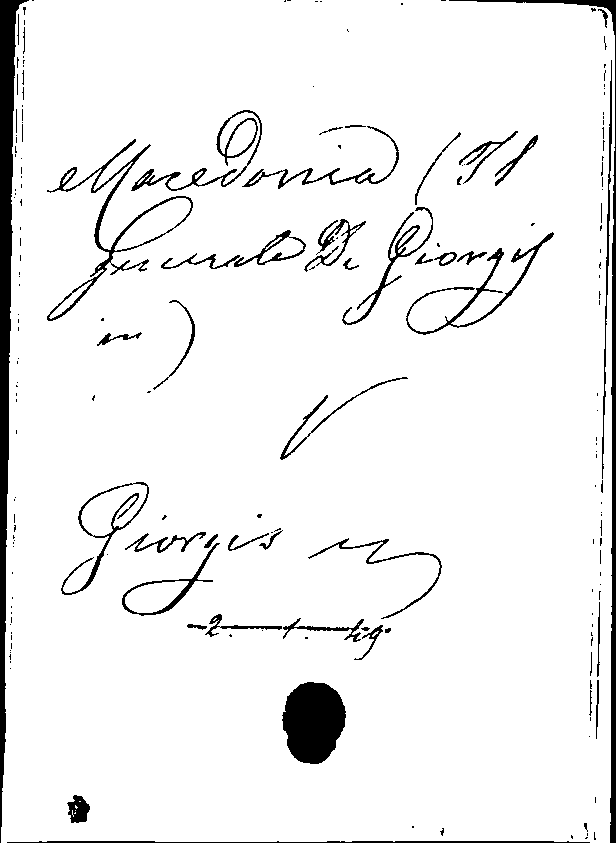 Macedonia (Il
Generale De Giorgis
in)
V
Giorgis
2. 1. 49